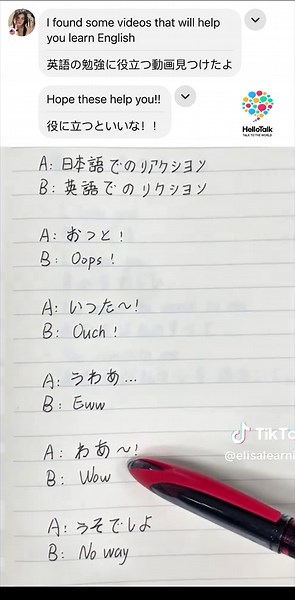 I found some videos that will help
you learn English
英語の勉強に役立つ動画見つけたよ
Hope these help you!!
役に立つといいな！！
HelloTalk
TALK TO THE WORLD
A: 日本語でのリアクション
B: 英語でのリクション
A: おっと!
B: Oops!
A: いった〜!
B: Ouch!
A: うわあ...
B: Eww
TikTo
@elisalearni
A: わあ〜!
B: Wow
A: うそでしょ
B: No way